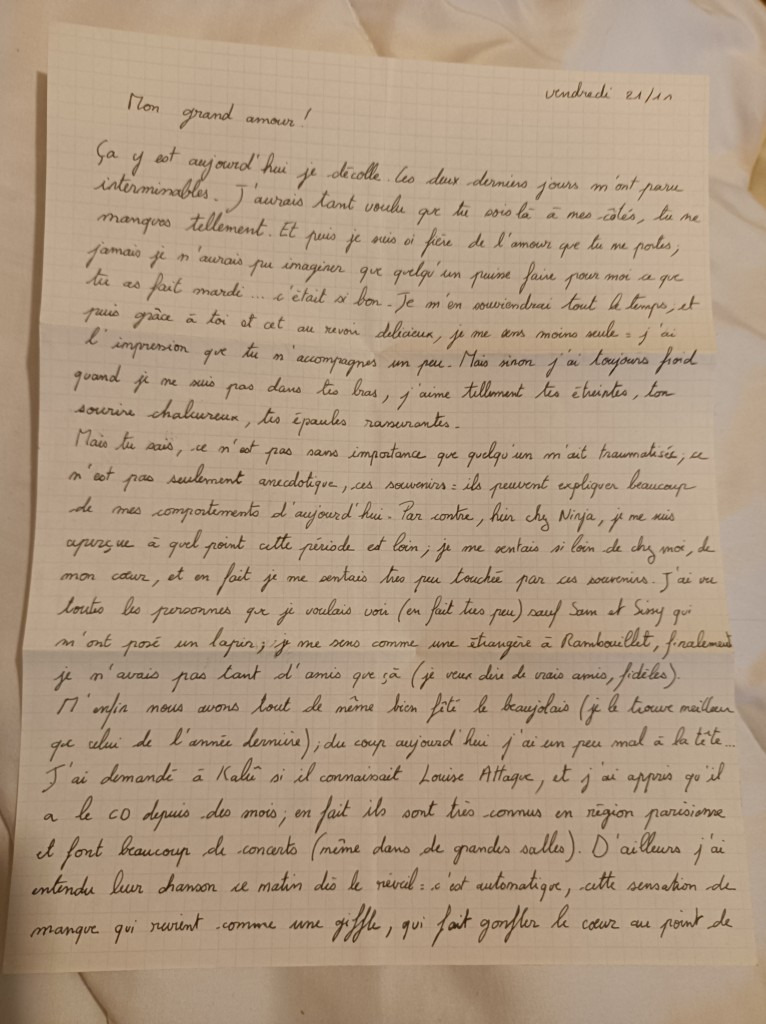 vendredi 21/11
Mon grand amour !
Ça y est aujourd'hui je décolle. Ces deux derniers jours m'ont paru
interminables. J'aurais tant voulu que tu sois là à mes côtés, tu me
manques tellement. Et puis je suis si fière de l'amour que tu me portes ;
jamais je n'aurais pu imaginer que quelqu'un puisse faire pour moi ce que
tu as fait mardi... c'était si bon. Je m'en souviendrai tout le temps, et
puis grâce à toi et cet au revoir délicieux, je me sens moins seule : j'ai
l'impression que tu m'accompagnes un peu. Mais sinon j'ai toujours froid
quand je ne suis pas dans tes bras, j'aime tellement tes étreintes, ton
sourire chaleureux, tes épaules rassurantes.
Mais tu sais, ce n'est pas sans importance que quelqu'un m'ait traumatisée ; ce
n'est pas seulement anecdotique, ces souvenirs : ils peuvent expliquer beaucoup
de mes comportements d'aujourd'hui. Par contre, hier chez Ninja, je me suis
aperçue à quel point cette période est loin ; je me sentais si loin de chez moi, de
mon cœur, et en fait je me sentais très peu touchée par ces souvenirs. J'ai vu
toutes les personnes que je voulais voir (en fait très peu) sauf Sam et Simy qui
m'ont posé un lapin ; je me sens comme une étrangère à Rambouillet, finalement
je n'avais pas tant d'amis que çà (je veux dire de vrais amis, fidèles).
M'enfin nous avons tout de même bien fêté le beaujolais (je le trouve meilleur
que celui de l'année dernière) ; du coup aujourd'hui j'ai un peu mal à la tête...
J'ai demandé à Kalû si il connaissait Louise Attaque, et j'ai appris qu'il
a le CD depuis des mois ; en fait ils sont très connus en région parisienne
et font beaucoup de concerts (même dans de grandes salles). D'ailleurs j'ai
entendu leur chanson ce matin dès le réveil : c'est automatique, cette sensation de
manque qui revient comme une giffle, qui fait gonfler le cœur au point de